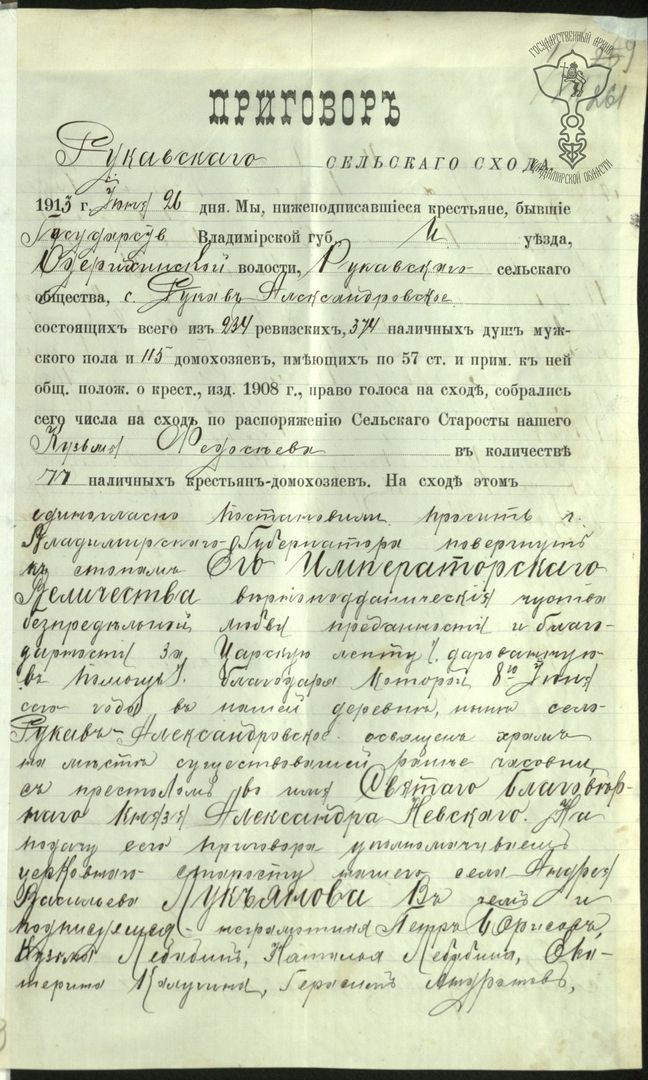 ГОСУДАРСТВЕННЫЙ АРХИВ
ВЛАДИМИРСКОЙ ОБЛАСТИ
259
261
ПРИГОВОРЪ
Рукавскаго СЕЛЬСКАГО СХОДА.
1913 г. Іюня 26 дня. Мы, нижеподписавшіеся крестьяне, бывшіе
Государств Владимірской губ. уѣзда,
волости, Рукавскаго сельскаго
общества, с. Рукавъ Александровское
состоящихъ всего изъ 234 ревизскихъ, 374 наличныхъ душъ муж-
ского пола и 115 домохозяевъ, имѣющихъ по 57 ст. и прим. къ ней
общ. полож. о крест., изд. 1908 г., право голоса на сходѣ, собрались
сего числа на сходъ по распоряженію Сельскаго Старосты нашего
Кузьмы Федосѣева въ количествѣ
77 наличныхъ крестьянъ-домохозяевъ. На сходѣ этомъ
единогласно постановили просить г.
Владимирскаго Губернатора повергнуть
къ стопамъ Его Императорскаго
Величества вѣрноподданическія чуства
безпредѣльной любви преданности и благо-
дарности за Царскую лепту, дарованную
въ помощь, благодаря которой 8го Іюня
сего года въ нашей деревнѣ, нынѣ село
Рукавъ-Александровское освященъ храмъ
на мѣстѣ существовавшей ранѣе часовни
съ престоломъ во имя Святаго Благовѣр-
наго Князя Александра Невскаго. На
подачу сего приговора уполномачиваемъ
церковнаго старосту нашего села Андрея
Васильева Лукъянова Въ чемъ и
подписуемся - неграмотныя Петръ Борисовъ,
Кузьма Лебабинъ, Наталья Лебабина, Ека-
терина Калугина, Герасимъ